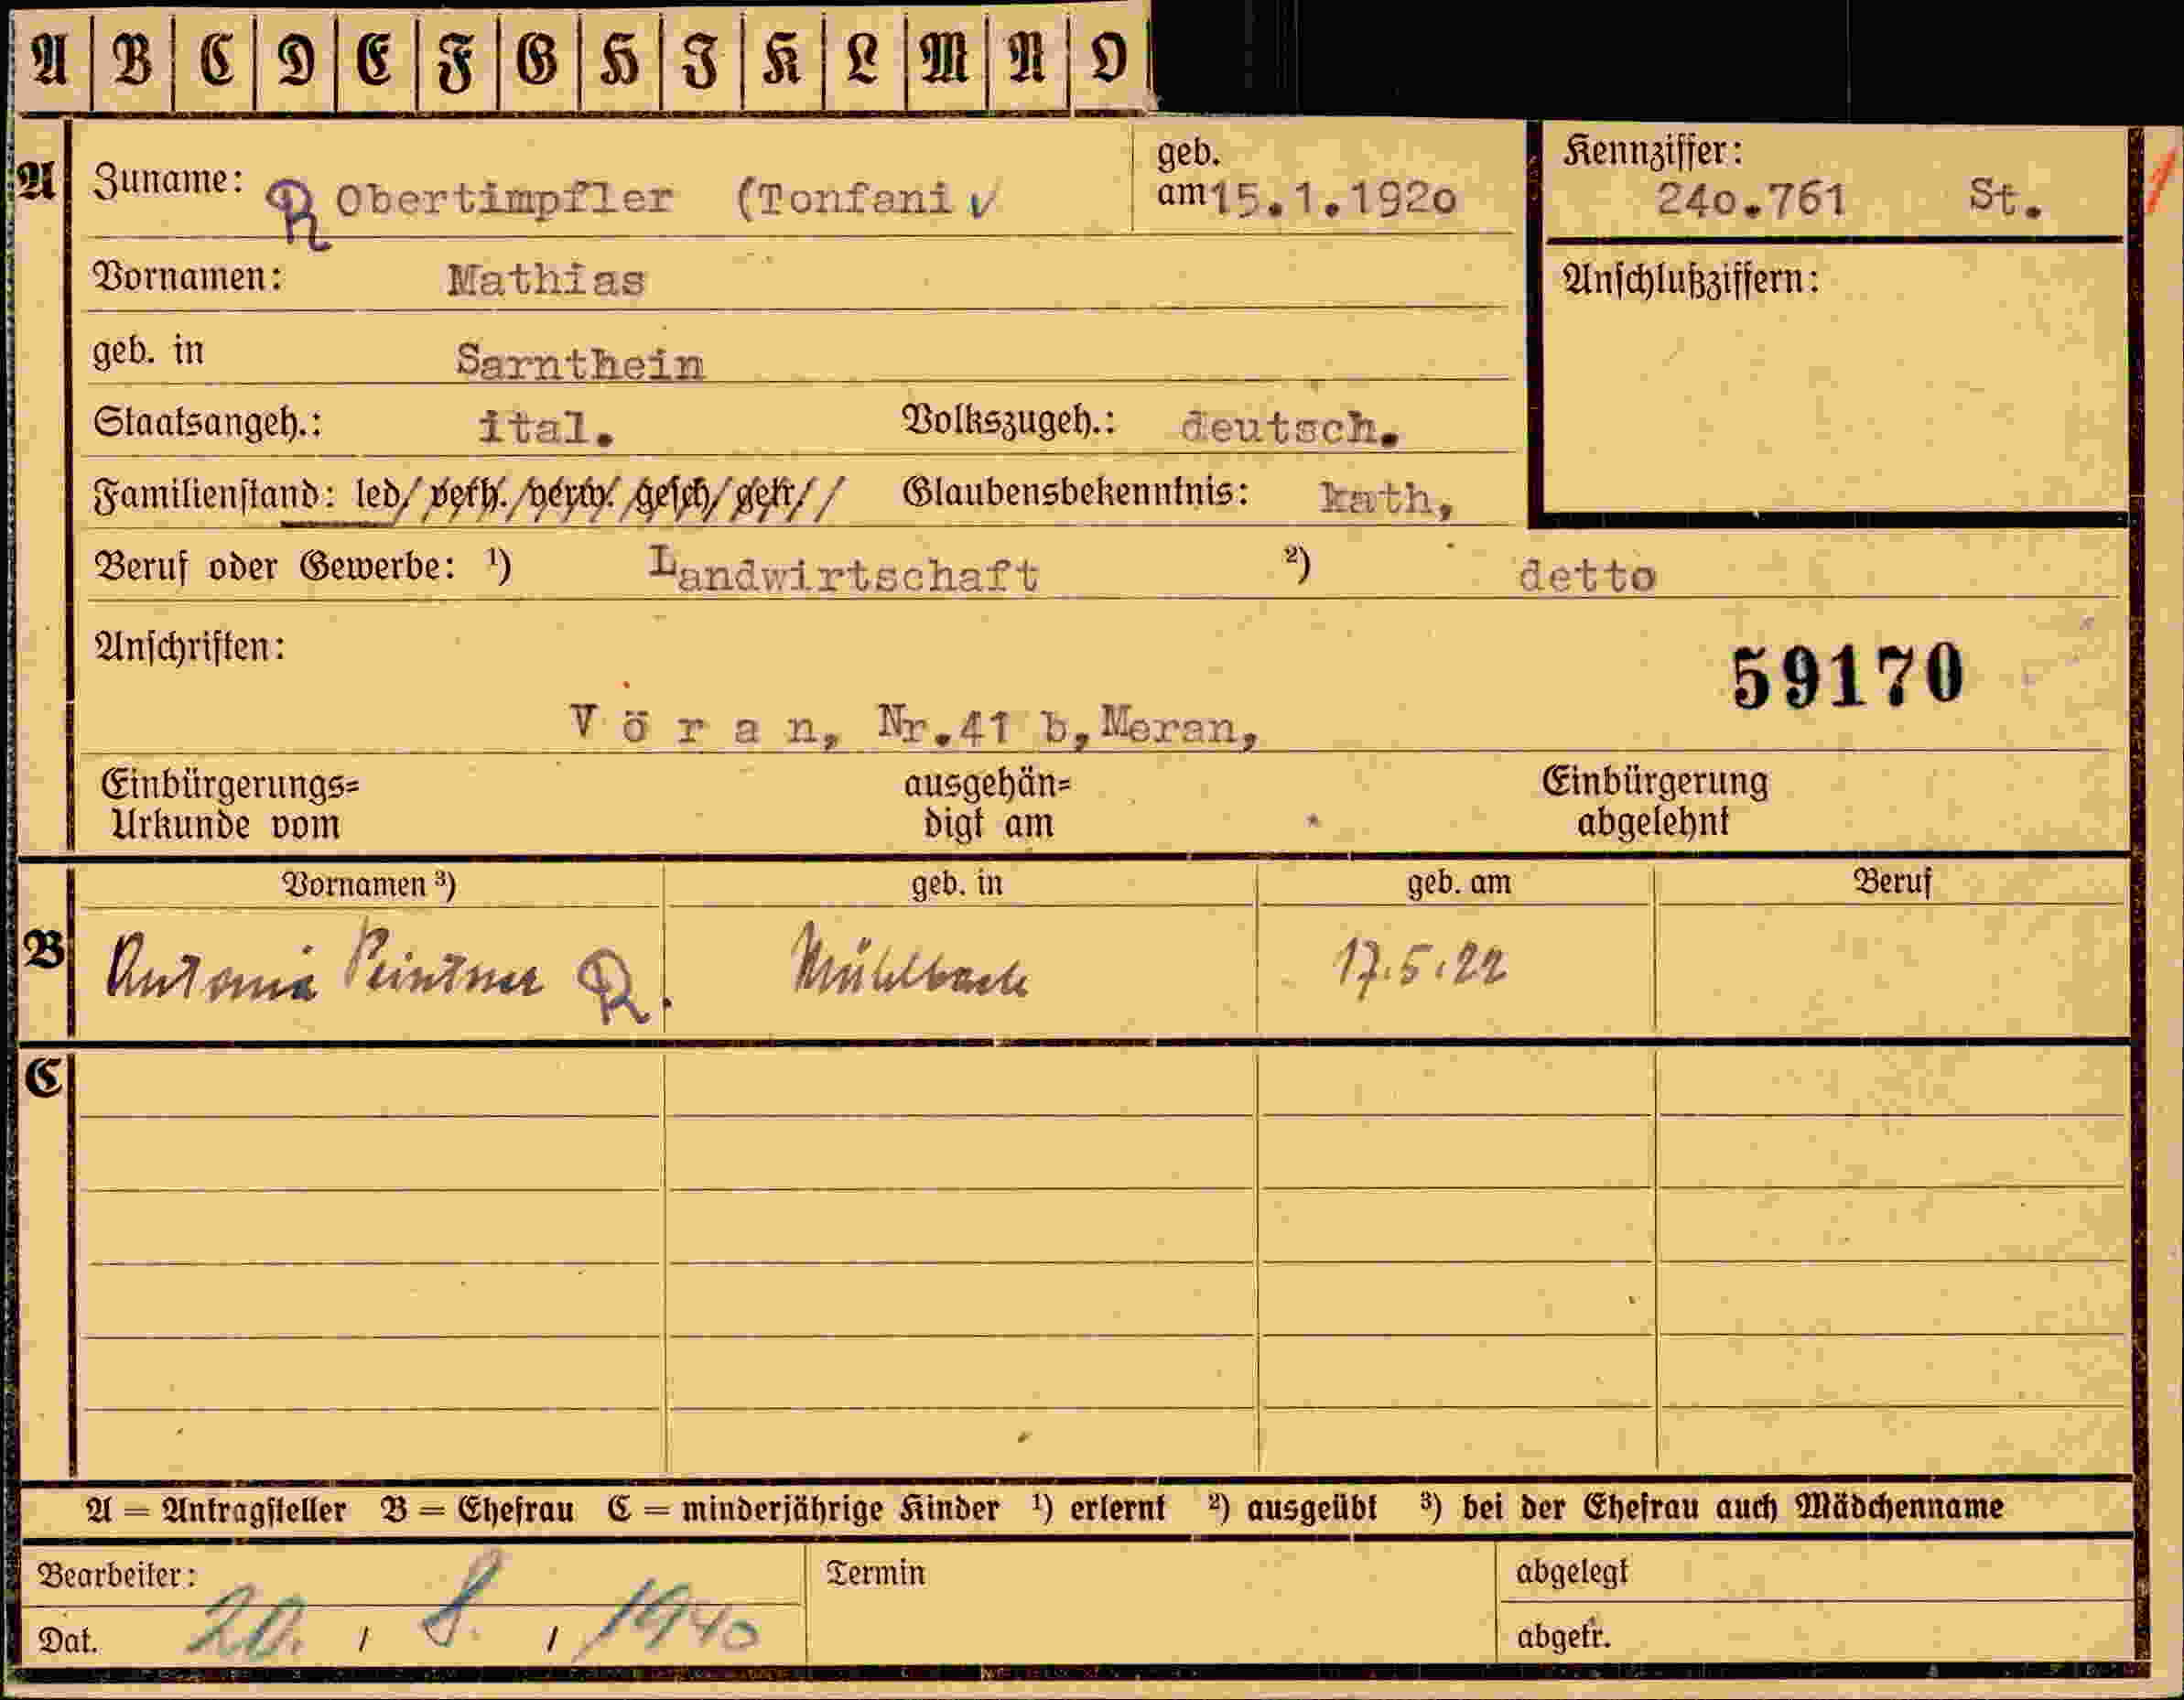 A B C D E F G H I K L M N O
A Zuname: R Obertimpfler (Tonfani √ geb. am 15.1.192o Kennziffer: 24o.761 St.
Vornamen: Mathias Anschlußziffern:
geb. in Sarnthein
Staatsangeh.: ital. Volkszugeh.: deutsch.
Familienstand: led/ verh./verw./gesch/getr// Glaubensbekenntnis: kath,
Beruf oder Gewerbe: ¹) Landwirtschaft ²) detto
Anschriften:
59170
V ö r a n, Nr.41 b,Meran,
Einbürgerungs= ausgehän= Einbürgerung
Urkunde vom digt am abgelehnt
Vornamen ³) geb. in geb. am Beruf
B Antonia Peintner R. Mühlbach 17.5.22
C
A = Antragsteller B = Ehefrau C = minderjährige Kinder ¹) erlernt ²) ausgeübt ³) bei der Ehefrau auch Mädchenname
Bearbeiter: Termin abgelegt
Dat. 20. / 8. / 1940 abgetr.